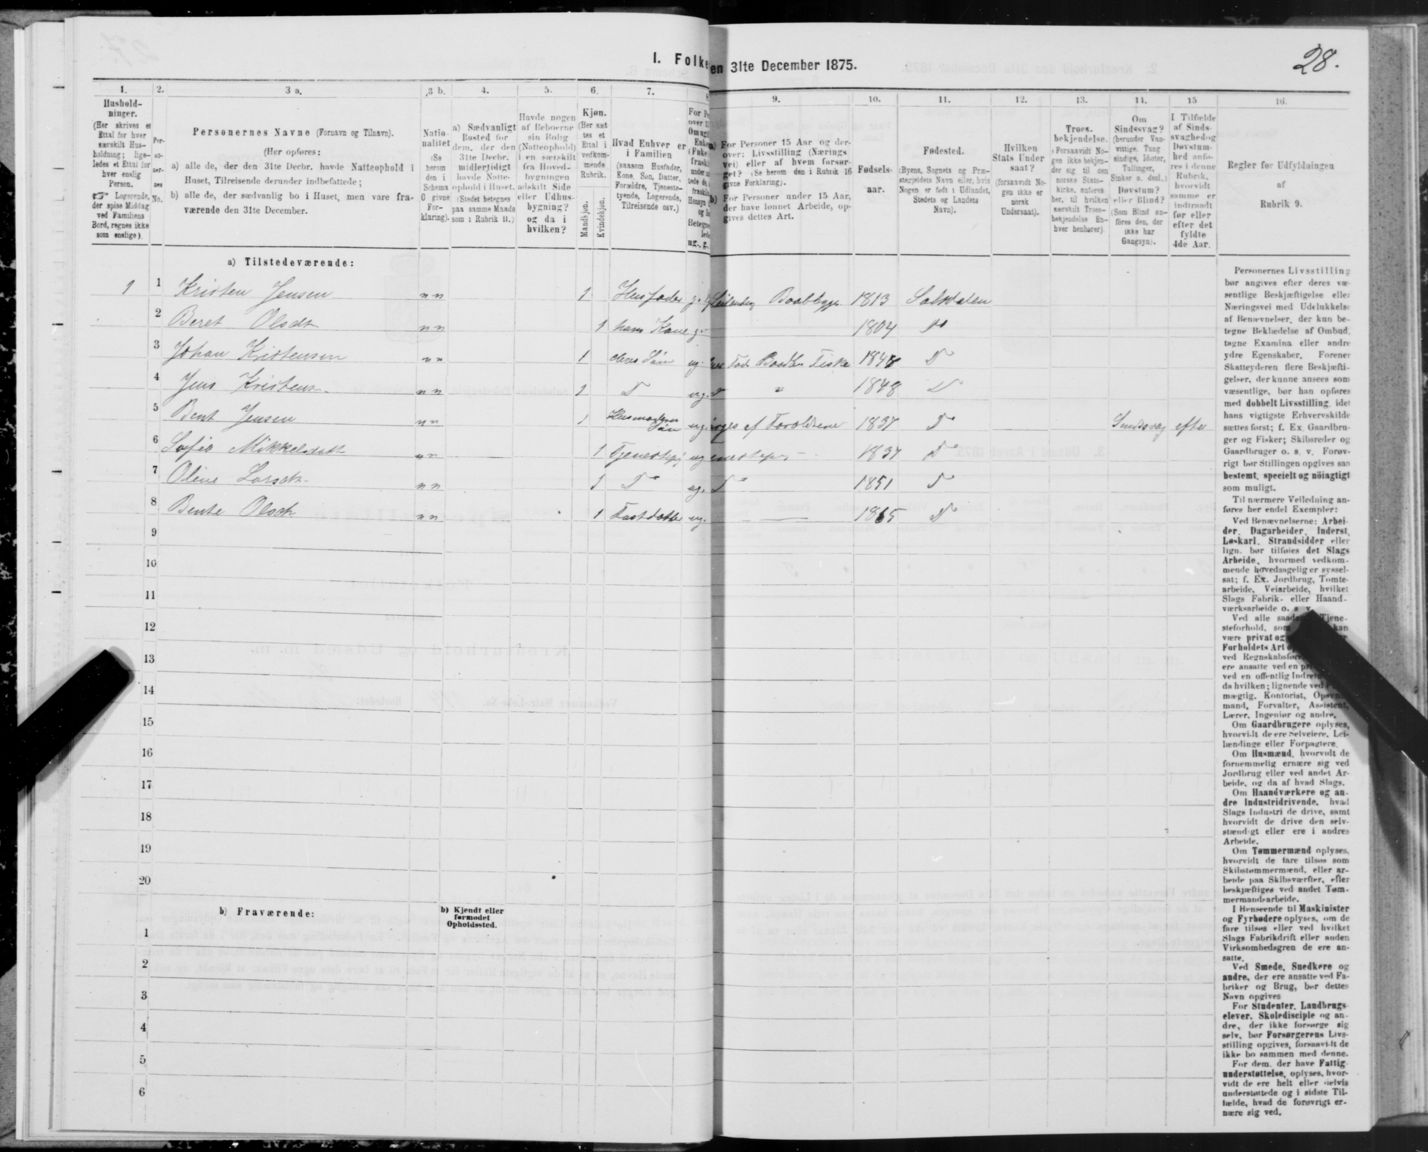 28.
I. Folke
en 31te December 1875.
1.
Hushold-
ninger.
(Her skrives et
Ettal for hver
særskilt Hus-
holdning; lige-
ledes et Ettal for
hver enslig
Person.
Logerende,
der spise Middag
ved Familiens
Bord, regnes ikke
som enslige).
2.
Per-
so-
ner-
nes
No.
3 a.
Personernes Navne (Fornavn og Tilnavn).
(Her opføres:
a) alle de, der den 31te Decbr. havde Natteophold i
Huset, Tilreisende derunder indbefattede;
b) alle de, der sædvanlig bo i Huset, men vare fra-
værende den 31te December.
3 b.
Natio
nalitet
(Se
herom
den i
Schema
U givne
For-
klaring).
4.
a) Sædvanligt
Bosted for
dem, der den
31te Decbr.
midlertidigt
havde Natte-
ophold i Huset.
(Stedet betegnes
paa samme Maade
som i Rubrik 11.)
5.
Havde nogen
af Beboerne
sin Bolig
(Natteophold)
i en særskilt
fra Hoved-
bygningen
adskilt Side
eller Udhus-
bygning?
og da i
hvilken?
6.
Kjøn.
(Her sæt
tes et
Ettal i
vedkom-
mende
Rubrik.
Mandkjøn.
Kvindekjøn.
7.
Hvad Enhver er
i Familien
(saasom Husfader,
Kone, Søn, Datter,
Forældre, Tjeneste-
tyende, Logerende,
Tilreisende osv.)
9.
For Personer 15 Aar og der-
over: Livsstilling (Nærings
vei) eller af hvem forsør-
get? (Se herom den i Rubrik 16
givne Forklaring).
For Personer under 15 Aar,
der have lønnet Arbeide, op-
gives dettes Art.
10.
Fødsels-
aar.
11.
Fødested.
(Byens, Sognets og Præ-
stegjeldets Navn eller, hvis
Nogen er født i Udlandet,
Stedets og Landets
Navn).
12.
Hvilken
Stats Under
saat?
(forsaavidt No-
gen ikke er
norsk
Undersaat).
13.
Troes-
bekjendelse.
(Forsaavidt No-
gen ikke bekjen-
der sig til den
norske Stats-
kirke, anføres
her, til hvilken
særskilt Troes-
bekjendelse En-
hver henhører).
14.
Om
Sindssvag?
(herunder Van-
vittige, Tung
sindige, Idioter,
Tullinger,
Sinker o. desl.)
Døvstum?
eller Blind?
(Som Blind an-
føres den, der
ikke har
Gangsyn).
15
I Tilfælde
af Sinds-
svaghed og
Døvstum-
hed anfø-
res i denne
Rubrik,
hvorvidt
samme er
indtraadt
før eller
efter det
fyldte
4de Aar.
16.
Regler før Udfyldningen
af
Rubrik 9.
a) Tilstedeværende:
1 1 Kristen Jensen 1 Husfader 1813 Saltdalen
2 Beret Olsdt 1 hans Kone g. 1804 D
3 Johan Kristensen 1 deres Søn ug. Fiske 1848 D
4 Jens Kristens. 1 D ug. 1848 D
5 Bent Jensen 1 Søn ug. af Forældrene 1837 D Sindssvag efter
6 Sofie Mikkelsdatt 1 ug. 1837 D
7 Oline Larsdt. 1 D ug. D 1851 D
8 Bente Olsdt 1 ug. 1865 D
9
10
11
12
13
14
15
16
17
18
19
20
b) Fraværende:
b) Kjendt eller
formodet
Opholdssted.
1
2
3
4
5
6
Personernes Livsstilling
bør angives efter deres væ-
sentlige Beskjæftigelse eller
Næringsvei med Udelukkelse
af Benævnelser, der kun be-
tegne Beklædelse af Ombud,
tagne Examina eller andre
ydre Egenskaber. Forener
Skatteyderen flere Beskjæfti-
gelser, der kunne ansees som
væsentlige, bør han opføres
med dobbelt Livsstilling, idet
hans vigtigste Erhvervskilde
sættes først; f. Ex. Gaardbru-
ger og Fisker; Skibsreder og
Gaardbruger o. s. v. Forøv-
rigt bør Stillingen opgives saa
bestemt, specielt og nøiagtigt
som muligt.
Til nærmere Veiledning an-
føres her endel Exempler:
Ved Benævnelserne: Arbei-
der, Dagarbeider, Inderst,
Løskarl, Strandsidder eller
lign. bør tilføies det Slags
Arbeide, hvormed vedkom-
mende hovedsagelig er syssel-
sat; f. Ex. Jordbrug, Tomte-
arbeide, Veiarbeide, hvilket
Slags Fabrik- eller Haand-
værksarbeide o. s. v.
Ved alle Tjene-
steforhold, kan
være privat og
Forholdets Art
ved Regnskabsfør
ere ansatte ved en
ved en offentlig Indret
da hvilken; lignende ved
mægtig, Kontorist,
mand, Forvalter, Assistent,
Lærer, Ingeniør og andre.
Om Gaardbrugere oplyses,
hvorvidt de ere Selveiere, Lei-
lændinge eller Forpagtere.
Om Husmænd, hvorvidt de
fornemmelig ernære sig ved
Jordbrug eller ved andet Ar-
beide, og da af hvad Slags.
Om Haandværkere og an-
dre Industridrivende, hvad
Slags Industri de drive, samt
hvorvidt de drive den selv-
stændigt eller ere i andres
Arbeide.
Om Tømmermænd oplyses,
hvorvidt de fare tilsøs som
Skibstømmermænd, eller ar-
beide paa Skibsværfter, eller
beskjæftiges ved andet Tøm-
mermandsarbeide.
I Henseende til Maskinister
og Fyrbødere oplyses, om de
fare tilsøs eller ved hvilket
Slags Fabrikdrift eller anden
Virksomhedsgren de ere an-
satte.
Ved Smede, Snedkere og
andre, der ere ansatte ved Fa-
briker og Brug, bør dettes
Navn opgives
For Studenter, Landbrugs-
elever, Skoledisciple og an-
dre, der ikke forsørge sig
selv, bør Forsørgerens Livs-
stilling opgives, forsaavidt de
ikke bo sammen med denne.
For dem, der have Fattig-
understøttelse, oplyses, hvor-
vidt de ere helt eller delvis
understøttede og i sidste Til-
fælde, hvad de forøvrigt er-
nære sig ved.